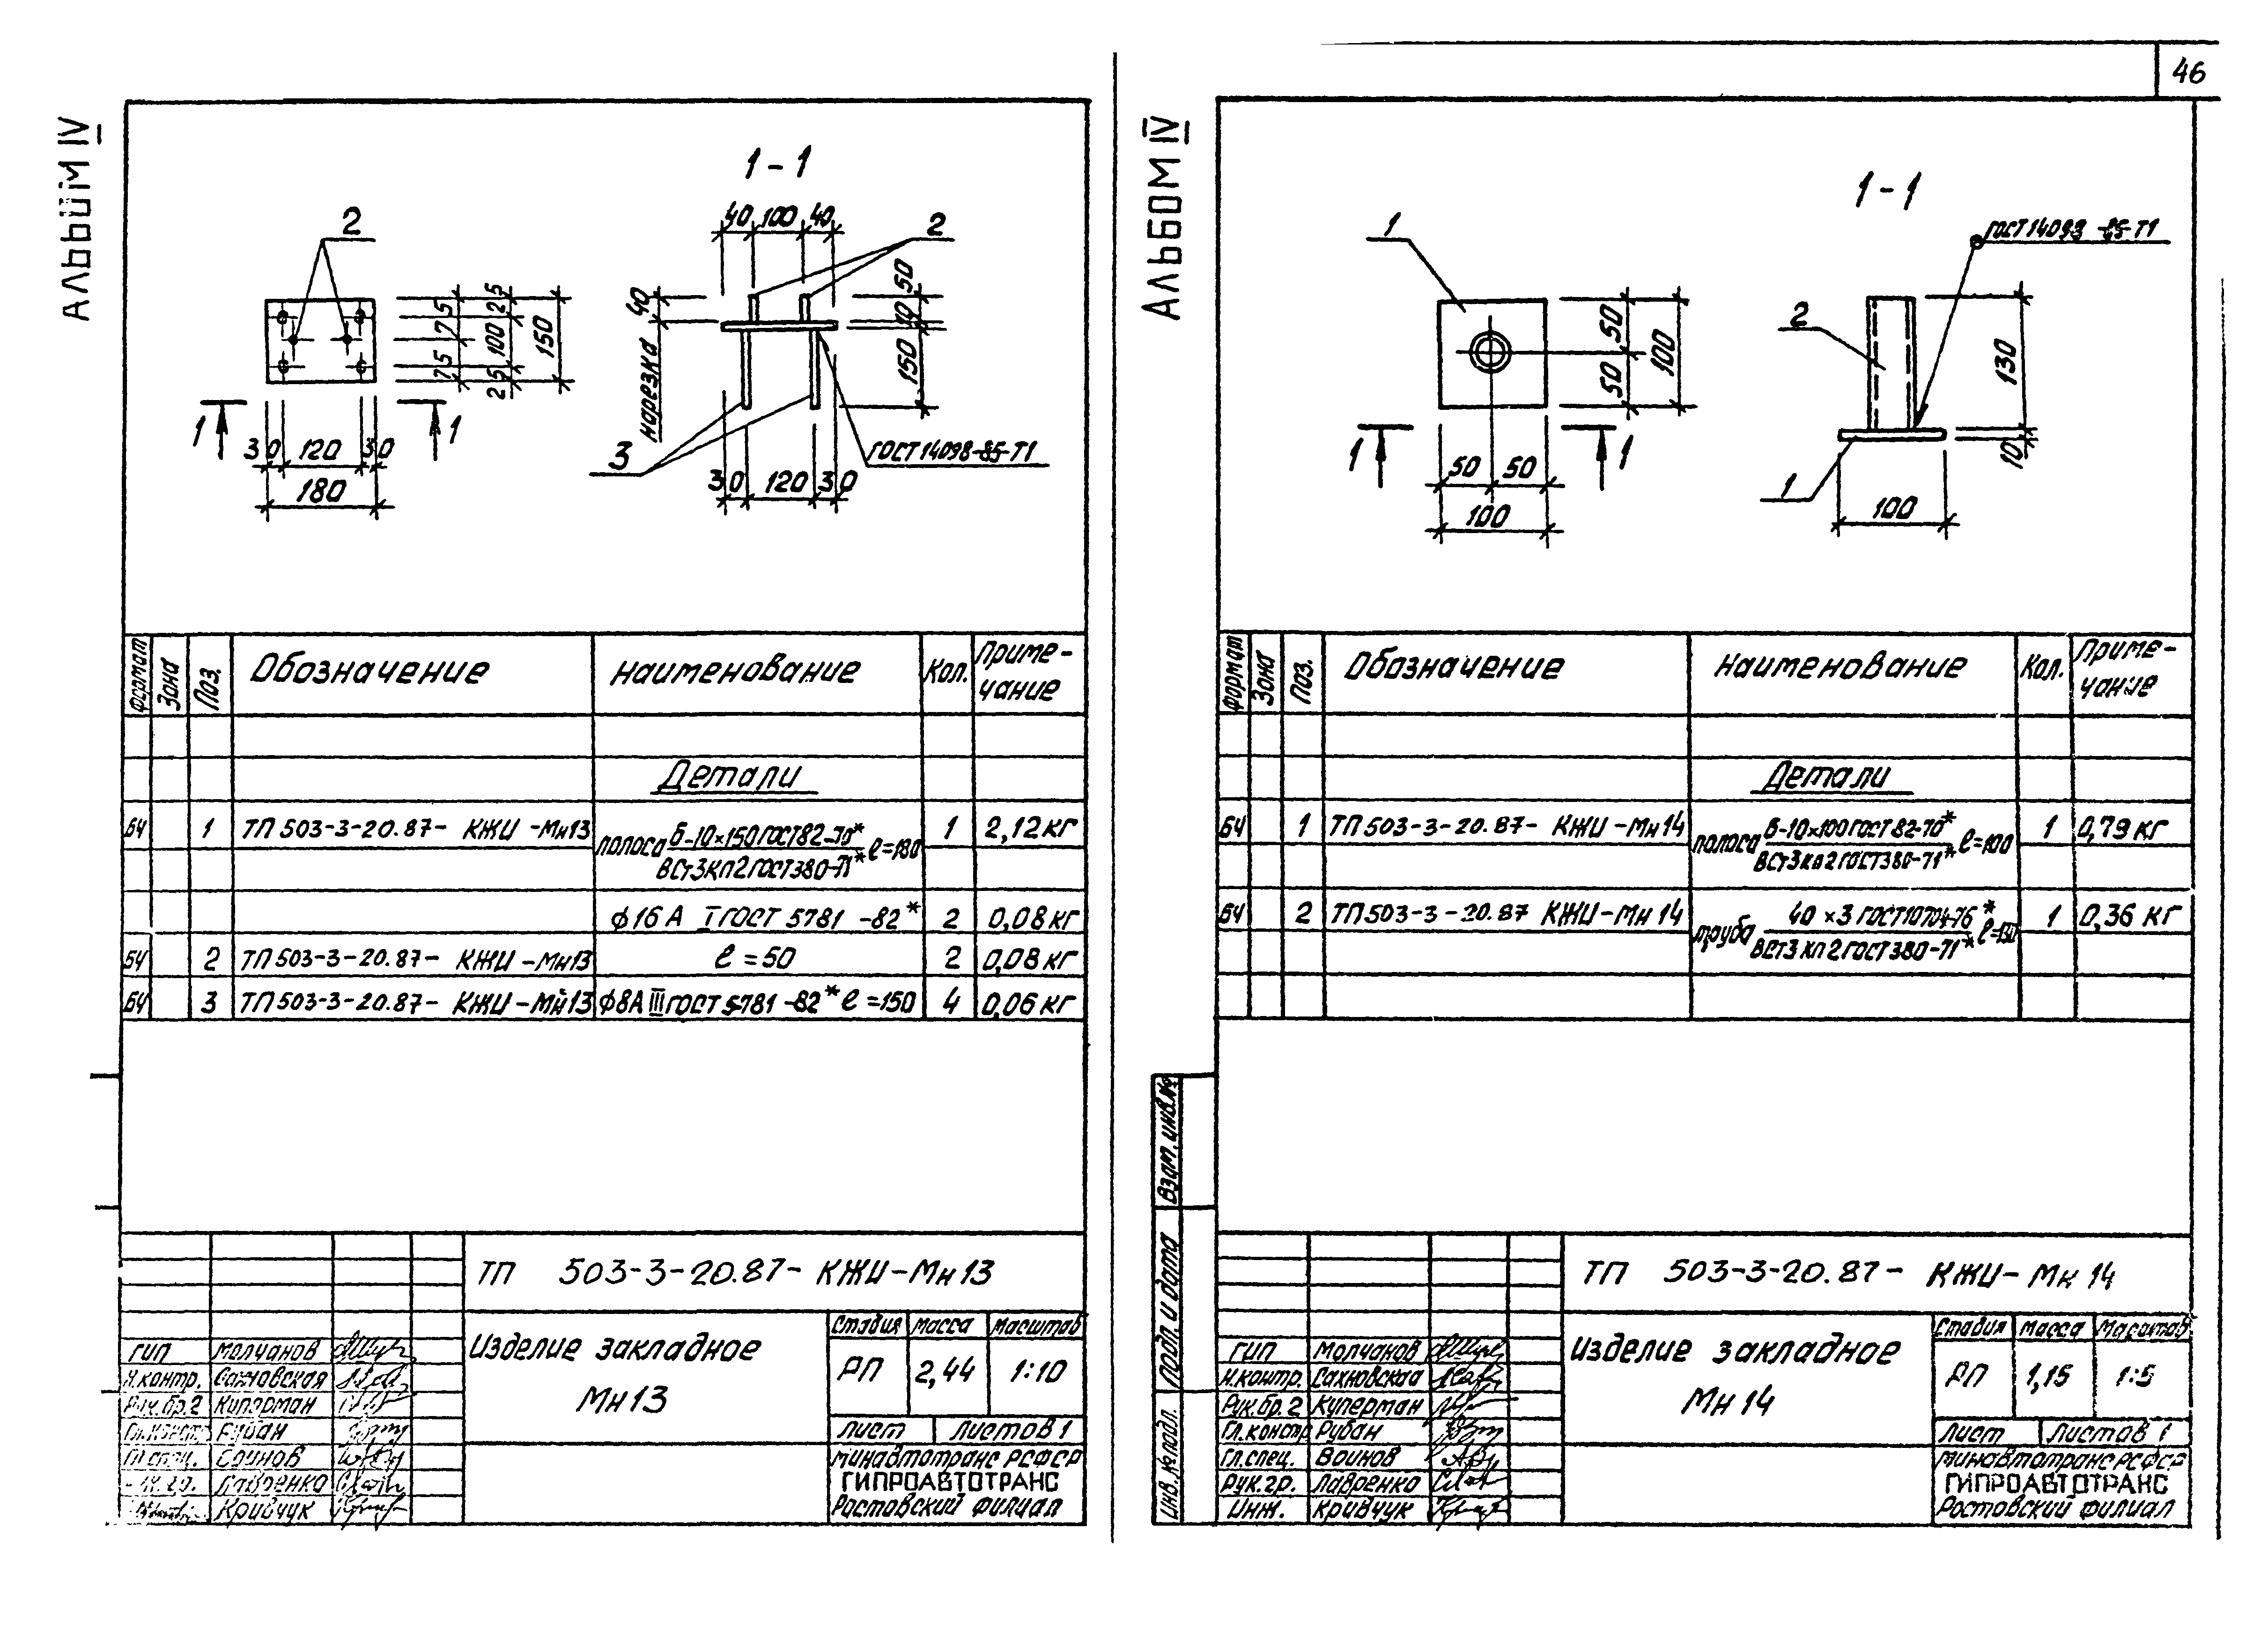 46
АЛЬБОМ IV
1-1
2
40 100 40
2
75 75
25 100 25
150
40
нарезка
50
10
150
1 1
30 120 30
180
3
30 120 30
ГОСТ 14098-85-Т1
Формат Зона Поз. Обозначение Наименование Кол. Приме-
чание
Детали
БЧ 1 ТП 503-3-20.87- КЖИ-Мн13 полоса Б-10×150 ГОСТ 82-70* ℓ=180 1 2,12 кг
ВСт3кп2 ГОСТ 380-71*
ф16 А I ГОСТ 5781-82* 2 0,08 кг
БЧ 2 ТП 503-3-20.87- КЖИ-Мн13 ℓ=50 2 0,08 кг
БЧ 3 ТП 503-3-20.87- КЖИ-Мн13 ф8А III ГОСТ 5781-82* ℓ=150 4 0,06 кг
ТП 503-3-20.87- КЖИ-Мн13
Изделие закладное
Мн13
Стадия Масса Масштаб
РП 2,44 1:10
Лист Листов 1
Минавтотранс РСФСР
ГИПРОАВТОТРАНС
Ростовский филиал
ГИП Молчанов
Н.контр. Сахновская
Рук.бр.2 Куперман
Гл.констр. Рубан
Гл.спец. Воинов
Рук.гр. Лавренко
Кривчук
АЛЬБОМ IV
1-1
1
ГОСТ 14098-85-Т1
50
50
100
2
130
10
1 1
50 50
100
1
100
Формат Зона Поз. Обозначение Наименование Кол. Приме-
чание
Детали
БЧ 1 ТП 503-3-20.87- КЖИ-Мн14 полоса Б-10×100 ГОСТ 82-70* ℓ=100 1 0,79 кг
ВСт3кп2 ГОСТ 380-71*
БЧ 2 ТП 503-3-20.87 КЖИ-Мн14 труба 40×3 ГОСТ 10704-76* ℓ=130 1 0,36 кг
ВСт3кп2 ГОСТ 380-71*
Взам. инв.№
Подп. и дата
Инв.№ подл.
ТП 503-3-20.87- КЖИ-Мн 14
Изделие закладное
Мн 14
Стадия Масса Масштаб
РП 1,15 1:5
Лист Листов 1
Минавтотранс РСФСР
ГИПРОАВТОТРАНС
Ростовский филиал
ГИП Молчанов
Н.контр. Сахновская
Рук.бр.2 Куперман
Гл.констр Рубан
Гл.спец. Воинов
Рук.гр. Лавренко
Инж. Кривчук